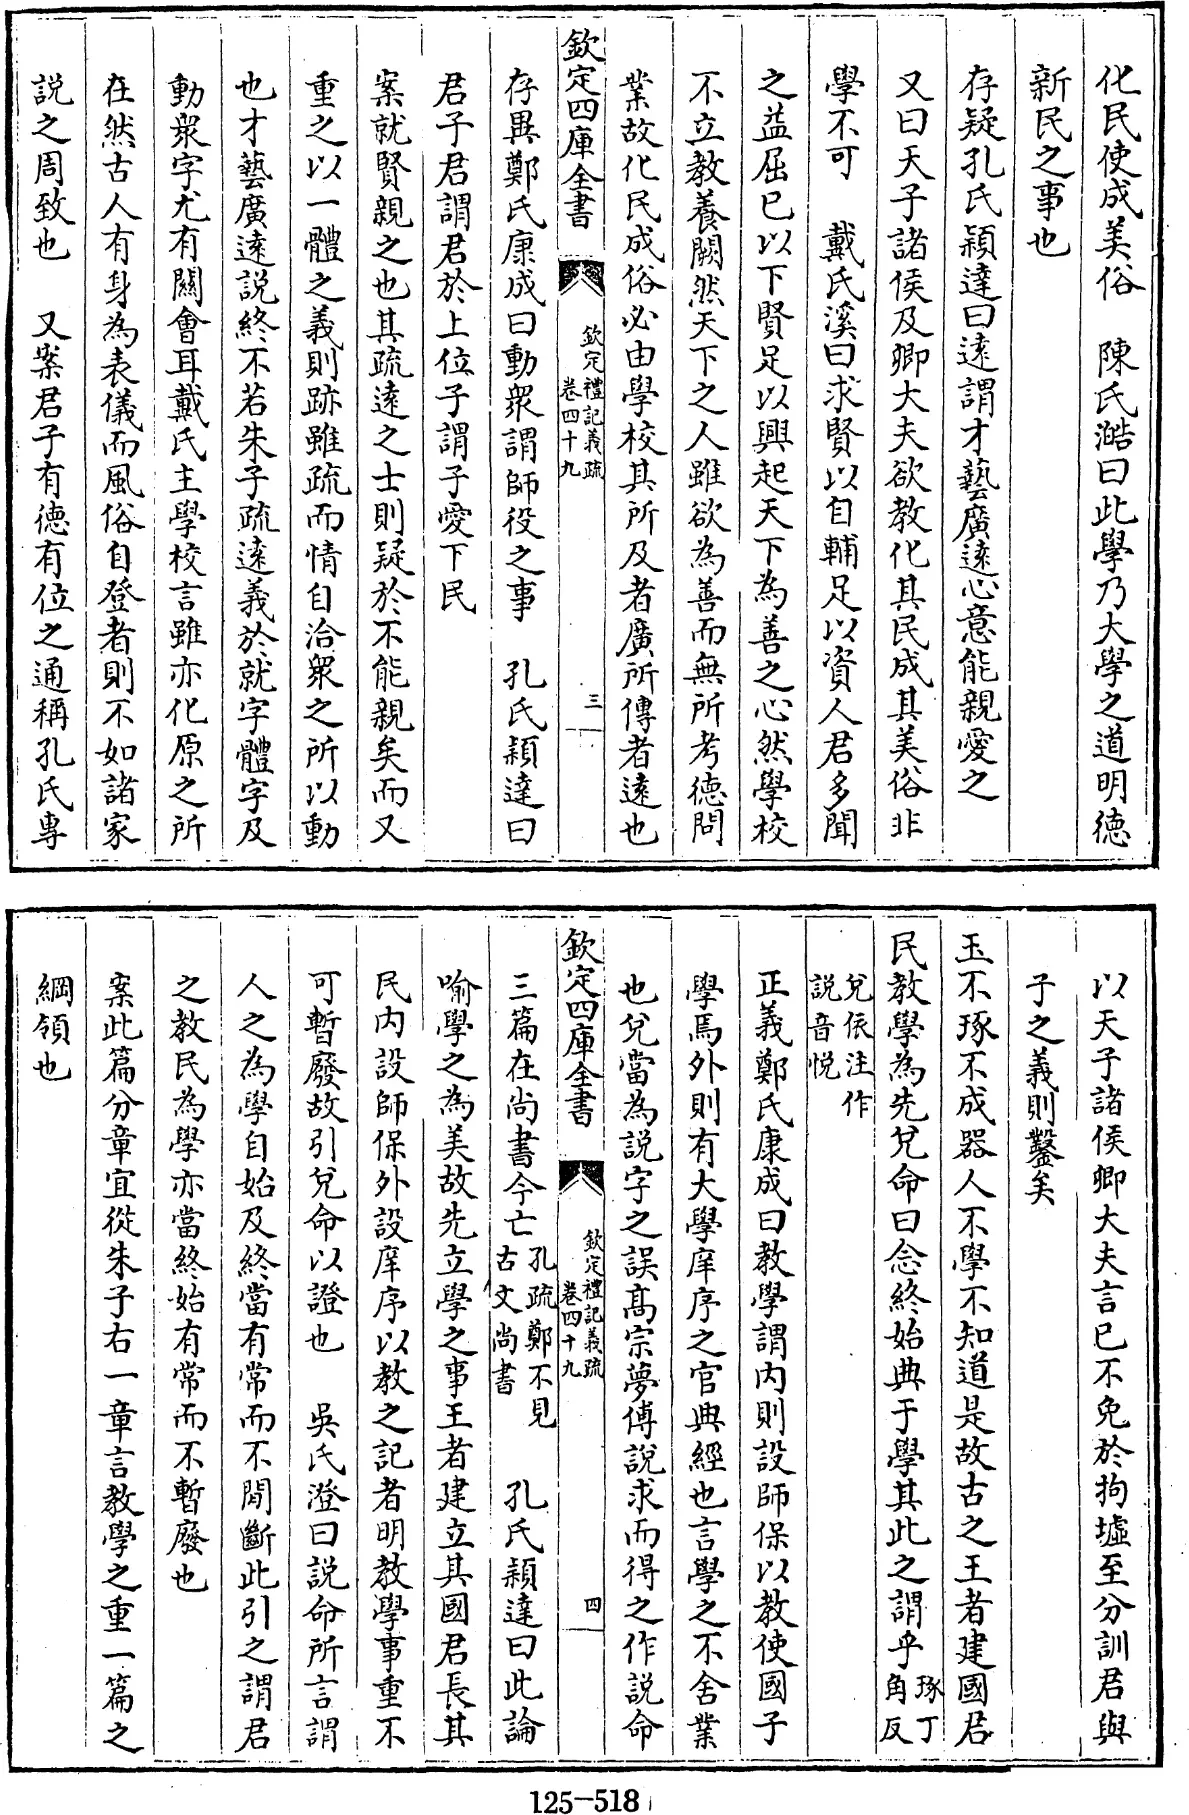 化民使成美俗　陳氏澔曰此學乃大學之道明德
新民之事也
存疑孔氏穎達曰遠謂才藝廣遠心意能親愛之
又曰天子諸侯及卿大夫欲教化其民成其美俗非
學不可　戴氏溪曰求賢以自輔足以資人君多聞
之益屈已以下賢足以興起天下為善之心然學校
不立教養闕然天下之人雖欲為善而無所考德問
業故化民成俗必由學校其所及者廣所傳者遠也
欽定四庫全書
欽定禮記義疏
卷四十九
三
存異鄭氏康成曰動衆謂師役之事　孔氏穎達曰
君子君謂君於上位子謂子愛下民
案就賢親之也其疏遠之士則疑於不能親矣而又
重之以一體之義則跡雖疏而情自洽衆之所以動
也才藝廣遠說終不若朱子疏遠義於就字體字及
動衆字尤有關會耳戴氏主學校言雖亦化原之所
在然古人有身為表儀而風俗自登者則不如諸家
說之周致也　又案君子有德有位之通稱孔氏專
以天子諸侯卿大夫言已不免於拘墟至分訓君與
子之義則鑿矣
玉不琢不成器人不學不知道是故古之王者建國君
民教學為先兌命曰念終始典于學其此之謂乎琢丁
角反
兌依注作
說音悅
正義鄭氏康成曰教學謂内則設師保以教使國子
學焉外則有大學庠序之官典經也言學之不舍業
也兌當為說字之誤髙宗夢傅說求而得之作說命
欽定四庫全書
欽定禮記義疏
卷四十九
四
三篇在尚書今亡孔疏鄭不見
古文尚書　孔氏穎達曰此論
喻學之為美故先立學之事王者建立其國君長其
民内設師保外設庠序以教之記者明教學事重不
可暫廢故引兌命以證也　吳氏澄曰說命所言謂
人之為學自始及終當有常而不間斷此引之謂君
之教民為學亦當終始有常而不暫廢也
案此篇分章宜從朱子右一章言教學之重一篇之
綱領也
125-518